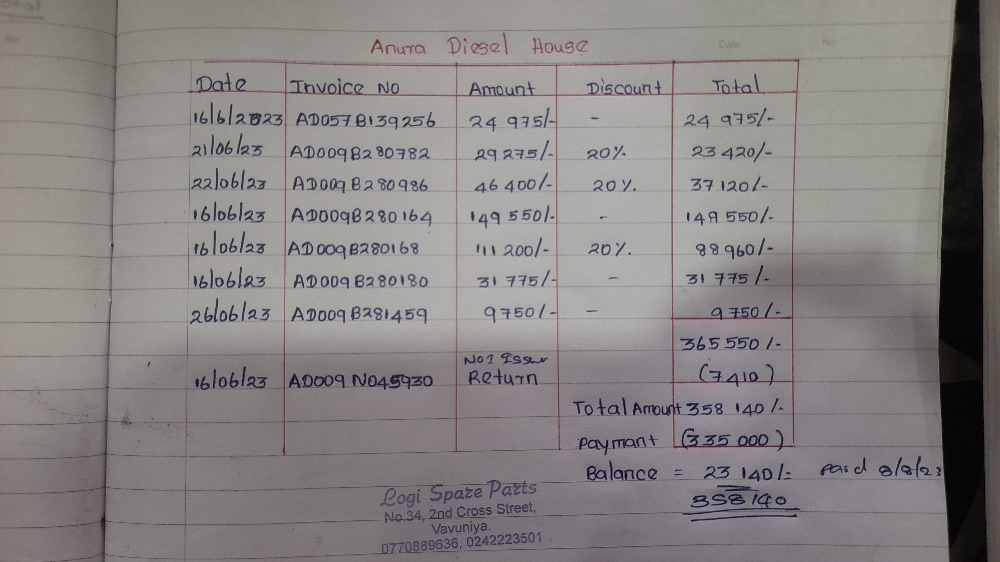 Anura Diesel House
Date No
Date Invoice No Amount Discount Total
16/6/2023 AD057B139256 24 975/- - 24 975/-
21/06/23 AD009B280782 29 275/- 20% 23 420/-
22/06/23 AD009B280986 46 400/- 20% 37 120/-
16/06/23 AD009B280164 149 550/- - 149 550/-
16/06/23 AD009B280168 111 200/- 20% 88 960/-
16/06/23 AD009B280180 31 775/- - 31 775/-
26/06/23 AD009B281459 9 750/- - 9 750/-
365 550/-
Not
16/06/23 AD009N045930 Return (7 410)
Total Amount 358 140/-
Paymant (335 000)
Balance = 23 140/= Paid 8/8/23
358 140
Logi Spare Parts
No.34, 2nd Cross Street,
Vavuniya.
0770889636, 0242223501